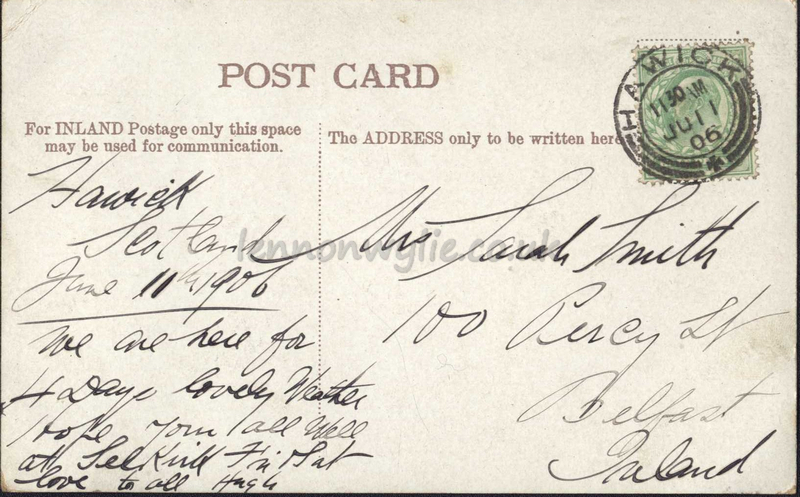 POST CARD
For INLAND Postage only this space
may be used for communication.
The ADDRESS only to be written here
HAWICK
11.30 AM
JU 11
06
Hawick
Scotland
June 11th 1906
We are here for
4 Days lovely Weather
Hope your all Well
at Selkirk Fri & Sat
love to all Hugh
Mrs Sarah Smith
100 Percy St
Belfast
Ireland
lennonwylie.co.uk